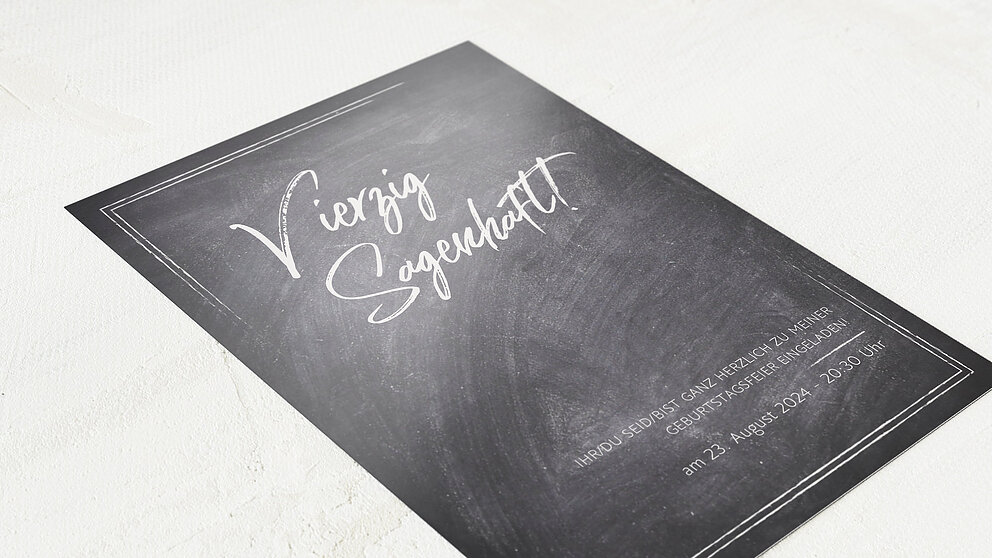 Vierzig
Sagenhaft!
IHR/DU SEID/BIST GANZ HERZLICH ZU MEINER
GEBURTSTAGSFEIER EINGELADEN!
am 23. August 2024 - 20:30 Uhr